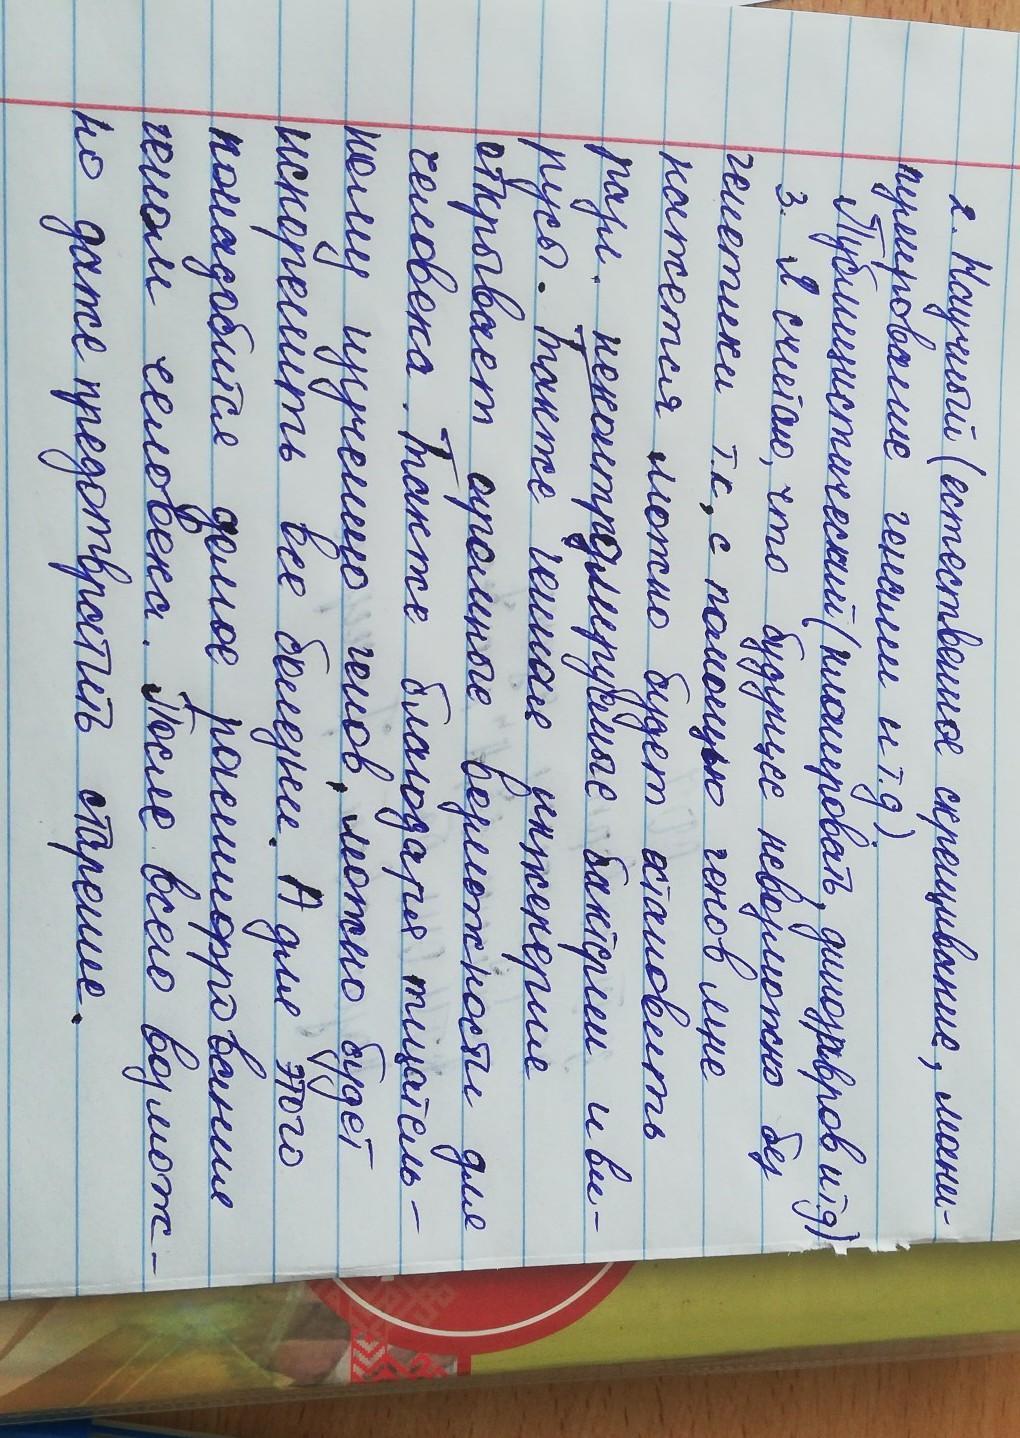 2. Научный (естественное скрещивание, мани-
пулирование генами и т.д)
Публицистический (клонировать, динозавров и т.д)
3. Я считаю, что будущее невозможно без
генетики т.к, с помощью генов мне
кажется можно будет остановить
разл. неконтролируемые бактерии и ви-
русы. Также генная инженерия
открывает огромные возможности для
человека. Также благодаря тщатель-
ному изучению генов, можно будет
искоренить все болезни. А для этого
понадобится полное расшифрование
генома человека. После всего возмож-
но даже предотвратить старение.